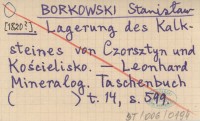 BORKOWSKI Stanisław
[1820?]. Lagerung des Kalk-
steines von Czorsztyn und
Kościelisko. — Leonhard
Mineralog. Taschenbuch
( ) t. 14, s. 599.
BT/006/0199